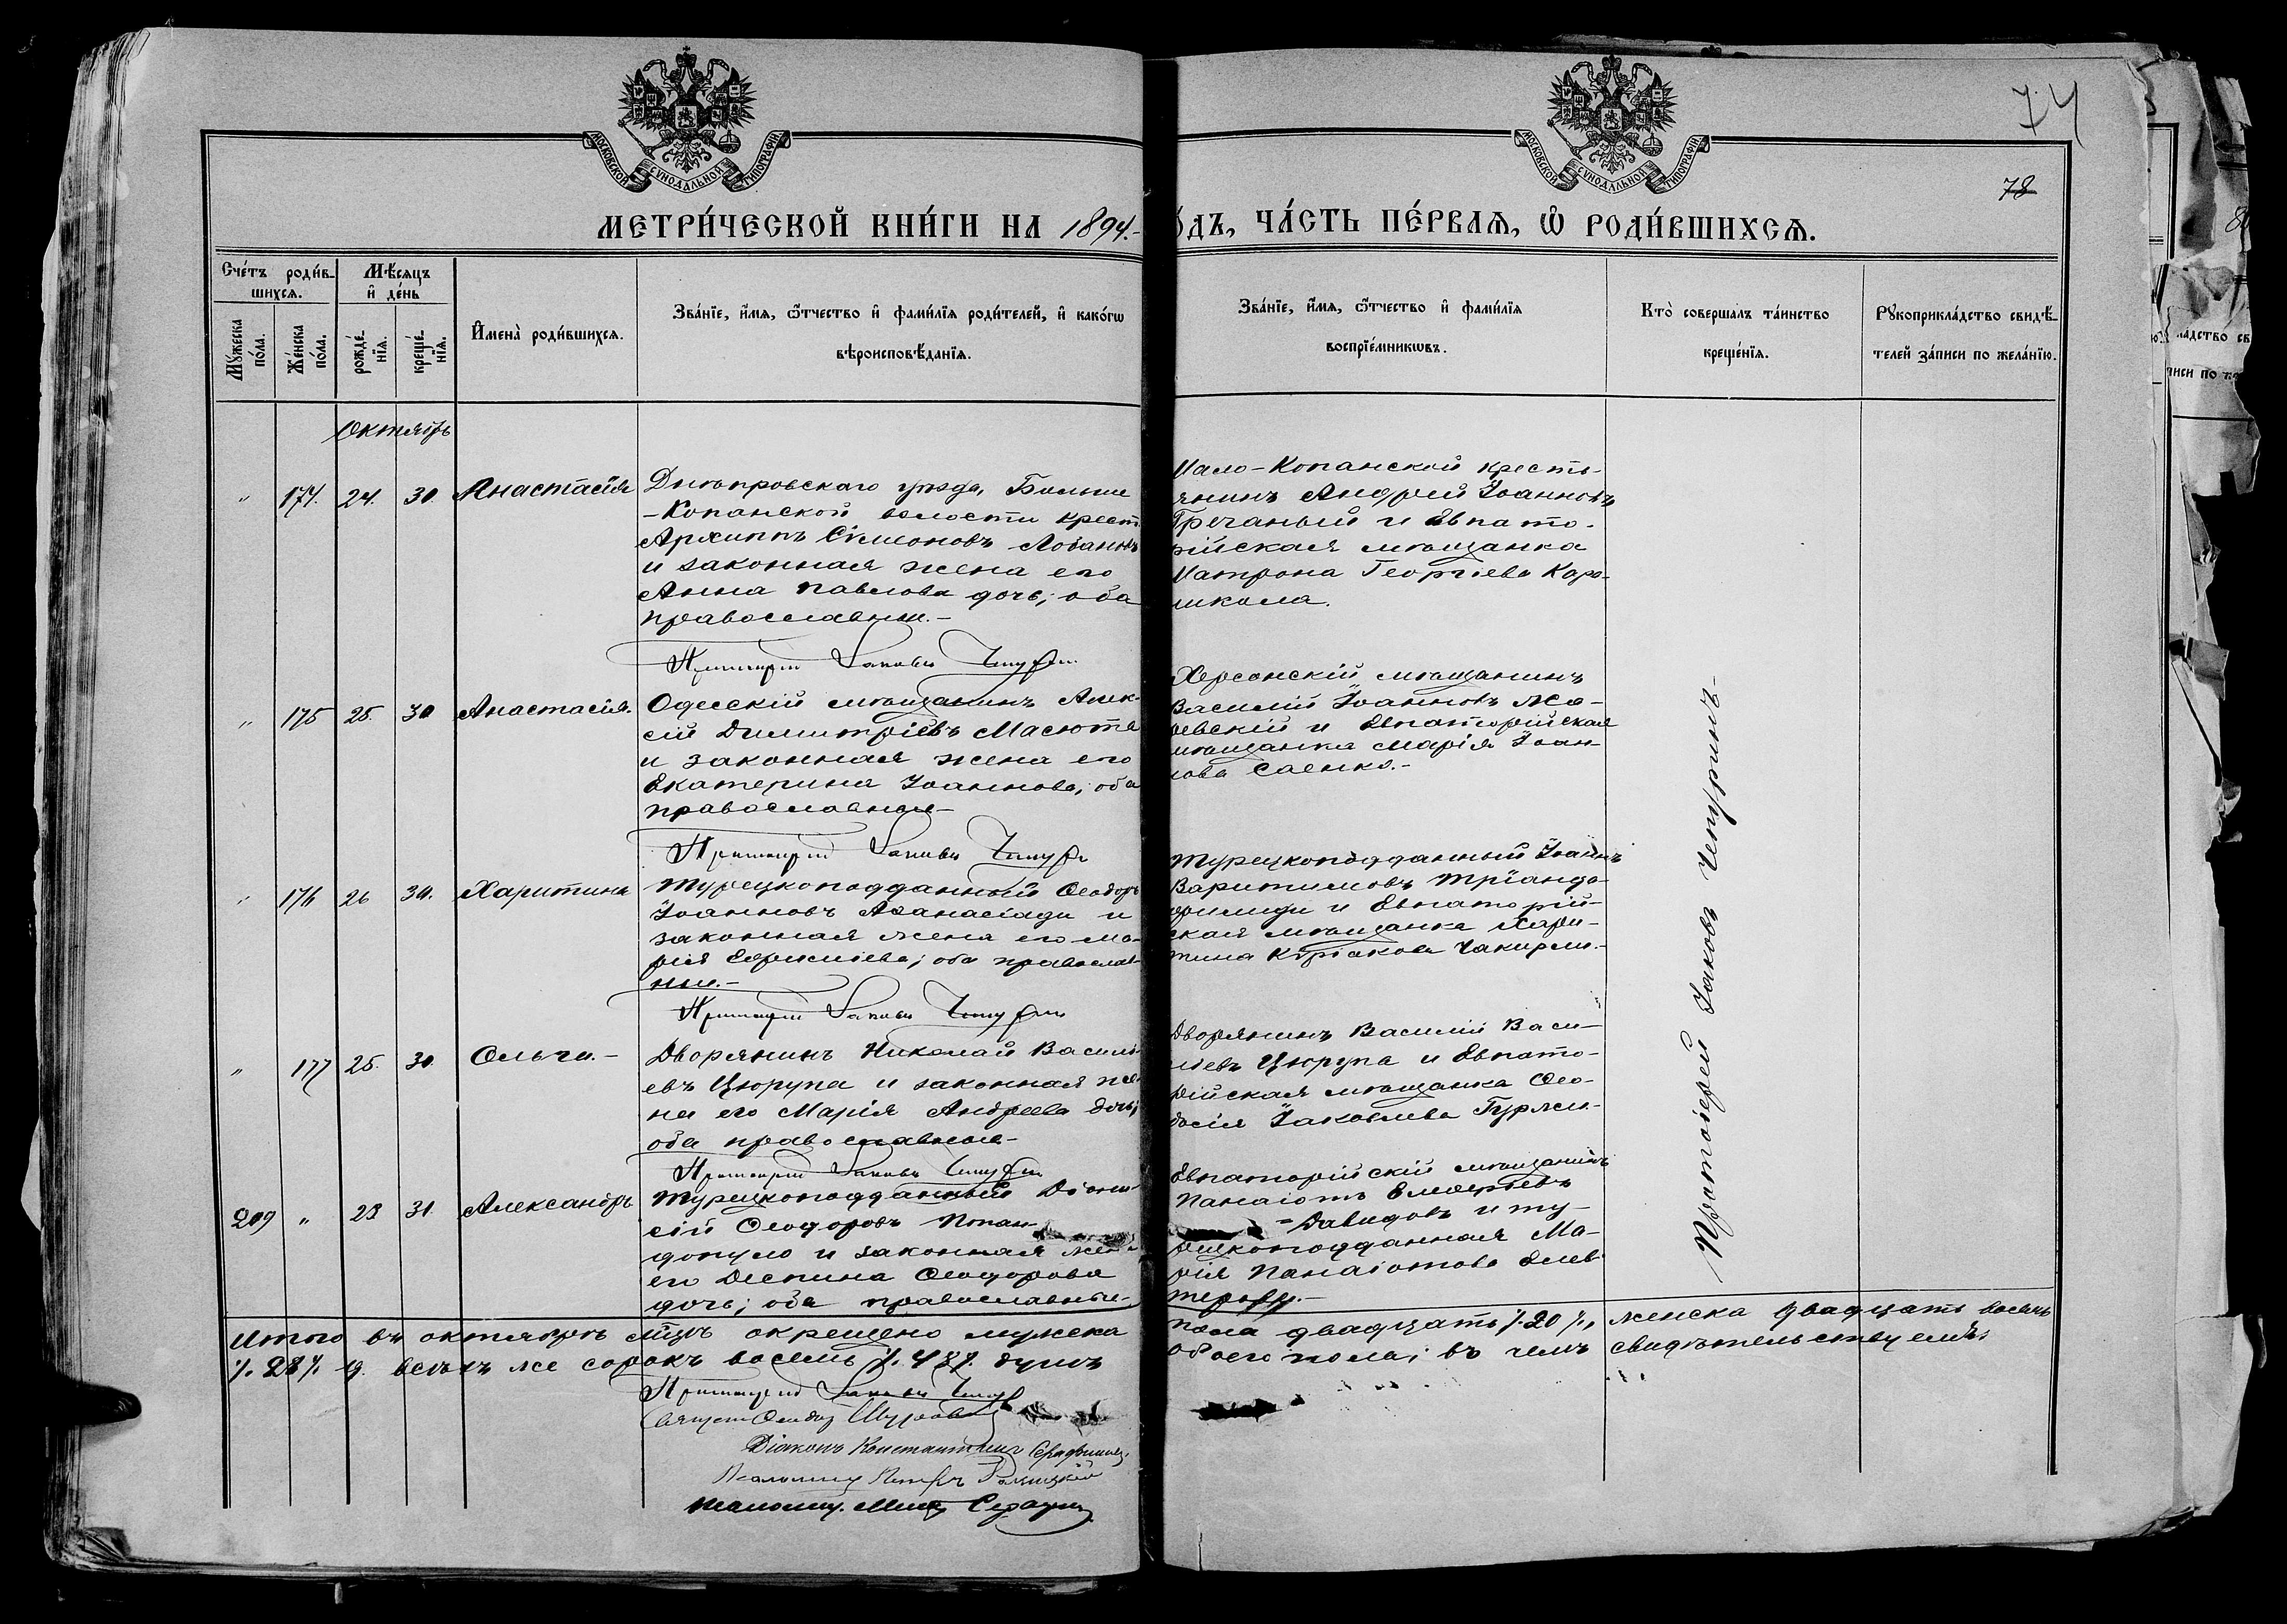 74
78
МОСКОВСКОЙ СУНОДАЛЬНОЙ ТИПОГРАФІИ
МОСКОВСКОЙ СУНОДАЛЬНОЙ ТИПОГРАФІИ
МЕТРИ́ЧЕСКОЙ КНИ́ГИ НА 1894.-
ѺДЪ, ЧА́СТЬ ПЕ́РВАѦ, Ѡ҆ РОДИ́ВШИХСѦ.
Сче́тъ роди́в-
шихсѧ.
Мꙋ́жеска по́ла.
Же́нска по́ла.
Мѣ́сѧцъ и҆ де́нь
рожде́-нїѧ.
креще́-нїѧ.
И҆мена̀ роди́вшихсѧ.
Зва́нїе, и҆́мѧ, ѻ҆́тчество и҆ фами́лїѧ роди́телей, и҆ како́гѡ
вѣроисповѣ́данїѧ.
Зва́нїе, и҆́мѧ, ѻ҆́тчество и҆ фами́лїѧ
воспрїе́мникѡвъ.
Кто̀ соверша́лъ та́инство
креще́нїѧ.
Рꙋкоприкла́дство свидѣ́-
телей за́писи по жела́нїю.
Октябрь
" 174. 24. 30. Анастасія
Днѣпровскаго уѣзда, Больше
-Копанской волости крест.
Архиппъ Сѵмеоновъ Лобановъ
и законная жена его
Анна Павлова дочь; оба
православные.-
Протоіерей Іаковъ Чепуринъ
Мало-Копанской кресть-
янинъ Андрей Іоанновъ
Гречаный и Евпато-
рійская мѣщанка
Матрона Георгіева Кара-
школа.
" 175 25. 30 Анастасія.
Одесскій мѣщанинъ Алек-
сій Димитріевъ Масюта
и законная жена его
Екатерина Іоаннова; оба
православные-
Протоіерей Іаковъ Чепуринъ
Херсонскій мѣщанинъ
Василій Іоанновъ
и Евпаторійская
мѣщанка Марія Іоан-
нова Саенко.-
" 176 26 30. Харитина
Турецкоподданный Ѳеодоръ
Іоанновъ Аѳанасіади и
законная жена его Ма-
рія Ефиміева; оба православ-
ные.-
Протоіерей Іаковъ Чепуринъ
Турецкоподданный Іоаннъ
Варитимовъ Тріанда-
филиди и Евпаторій-
ская мѣщанка Хари-
тина Кѵріакова Чакирли.-
" 177 25. 30. Ольга.-
Дворянинъ Николай Василь-
евъ Цюрупа и законная же-
на его Марія Андреева дочь;
оба православные-
Протоіерей Іаковъ Чепуринъ
Дворянинъ Василій Васи-
ліевъ Цюрупа и Евпато-
рійская мѣщанка Ѳео-
досія Іаковлева Гуржи.-
209 " 23 31. Александръ
Турецкоподданный Діони-
сій Ѳеодоровъ Попан-
допуло и законная жена
его Деспина Ѳеодорова
дочь; оба православные.
Евпаторійскій мѣщанинъ
Панаіотъ Елевѳеріевъ
Давидовъ и ту-
рецкоподданная Ма-
рія Панаіотова Елев
Протоіерей Іаковъ Чепуринъ-
Итого въ октябрѣ мѣцѣ окрещено мужска
пола двадцать /.20/., женска двадцать восемь
/.28/. всѣхъ же сорокъ восемь /.48/. душъ
обоего пола; въ чемъ свидѣтельствуемъ:
Протоіерей Іаковъ Чепуринъ
Священ Ѳеодоръ
Діаконъ Константинъ Серафимовъ.
Псаломщ Петръ
Псаломщ.